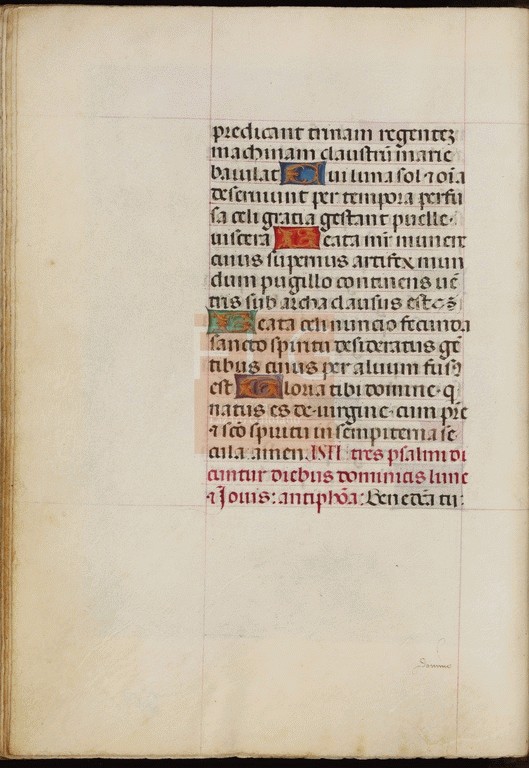 predicant trinam regentez
machinam claustrū marie
baiulat Cui luna sol ⁊ oīa
deseruiunt per tempora perfu
sa celi gratia gestant puelle
uiscera Beata mr̄ munere
cuius supernus artifex mun
dum pugillo continens uē
tris sub archa clausus est
Beata celi nuncio fecunda
sancto spiritu desideratus gē
tibus cuius per aluum fusꝰ
est Gloria tibi domine q̄
natus es de uirgine cum prē
⁊ scō spiritu in sempiterna se
cula amen. ISTI tres psalmi di
cuntur diebus dominicis lune
⁊ Jouis: antiphōa: Benedcā tu: